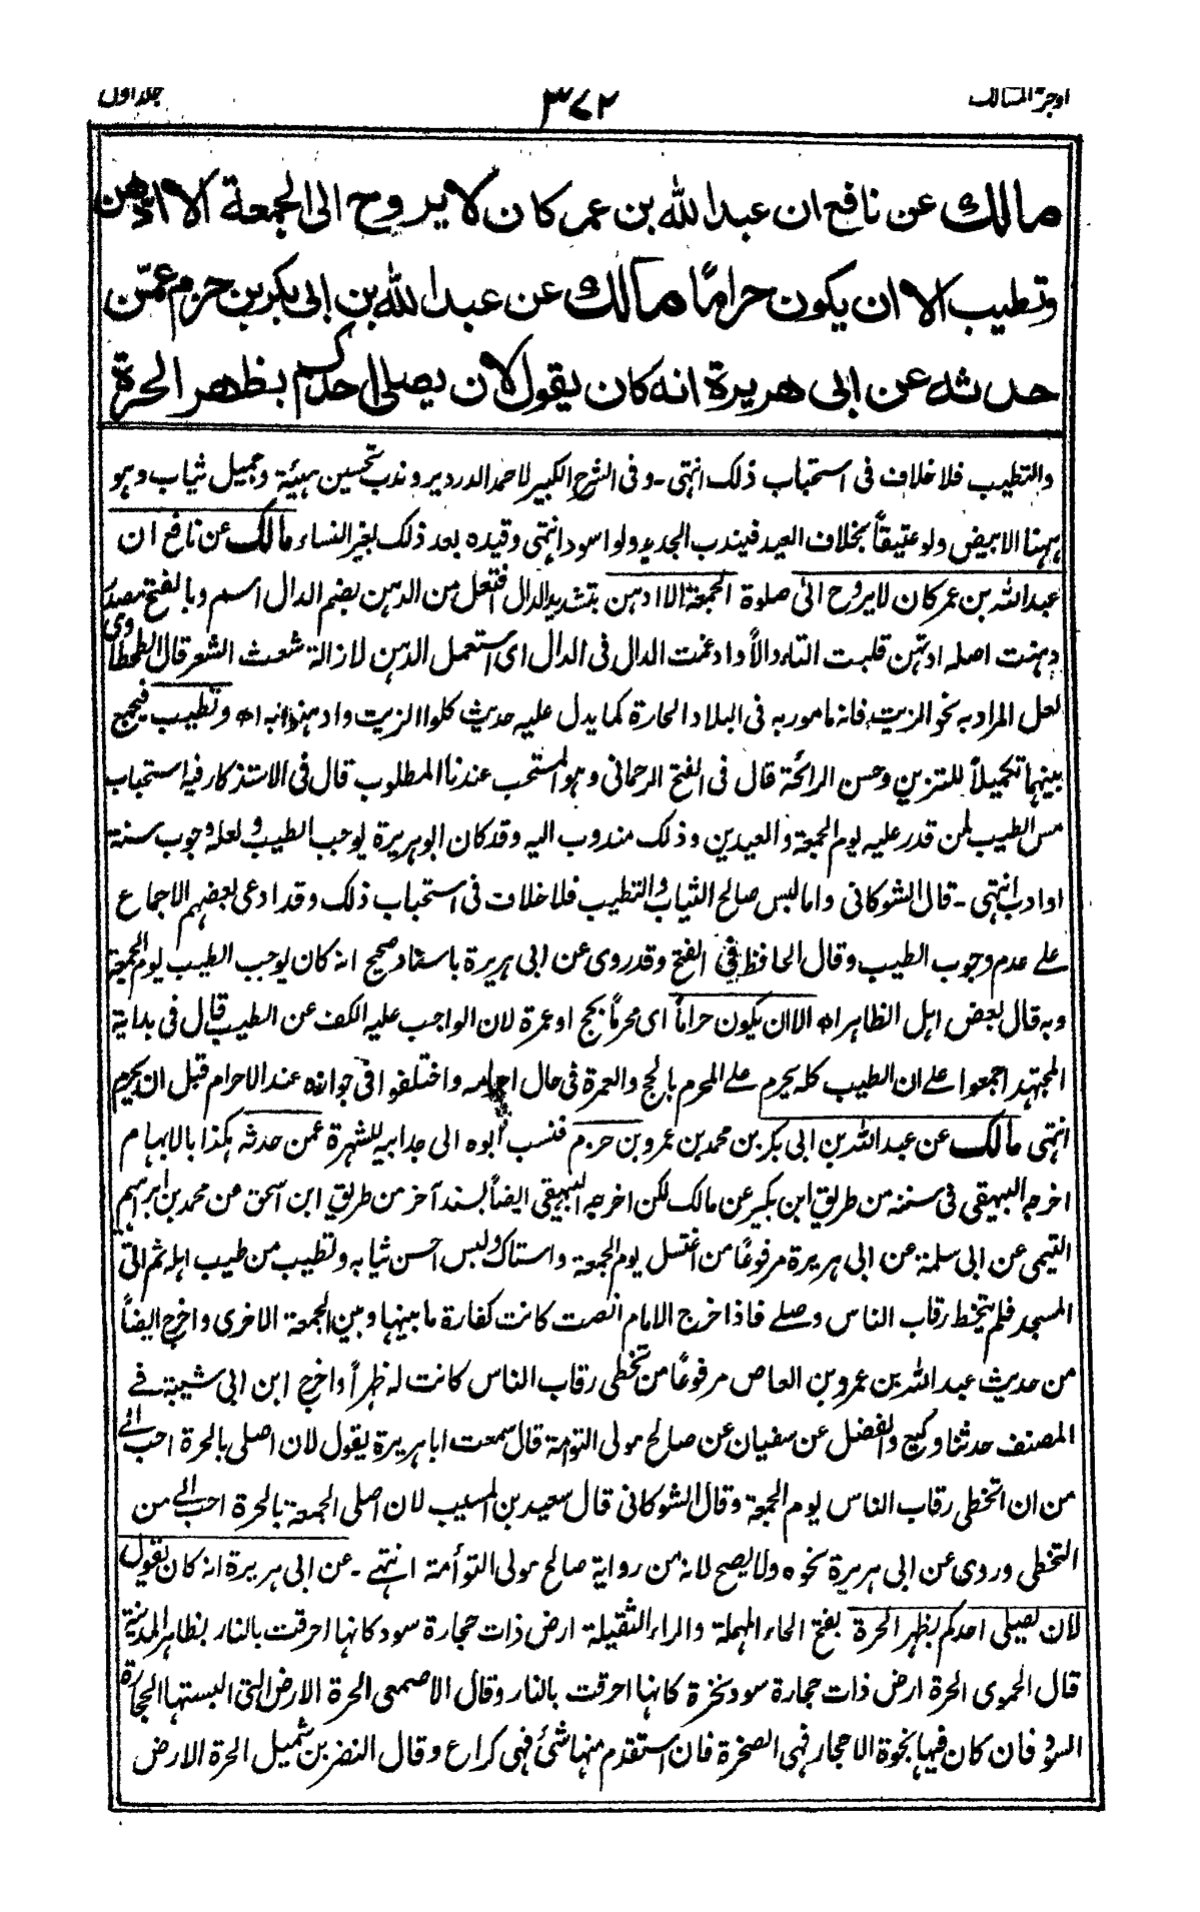 اوجز المسالك
٣٤٢
جلد اول
مالك عن نافع ان عبدالله بن عمر كان لا يروح الى الجمعة الا ادّهن
وتطيب الا ان يكون حرامًا مالك عن عبدالله بن ابى بكر بن حزم عمّن
حدثه عن ابى هريرة انه كان يقول لان يصلى احدكم بظهر الحرة
والتطيب فلا خلاف فى استحباب ذلك انتهى - وفى الشرح الكبير لاحمد الدردير وندب تحسين هيئة وجميل ثياب وهو
ههنا الابيض ولو عتيقاً بخلاف العيد فيندب الجديد ولو اسود انتهى وقيده بعد ذلك بغير النساء مالك عن نافع ان
عبدالله بن عمر كان لا يروح الى صلوة الجمعة الا ادهن بتشديد الدال افتعل من الدهن بضم الدال اسم وبالفتح مصدر
دهنت اصله ادتهن قلبت التاء دالاً وادغمت الدال فى الدال اى استعمل الدهن لازالة شعث الشعر قال الطحطاوى
لعل المراد به نحو الزيت فانه مامور به فى البلاد الحارة كما يدل عليه حديث كلوا الزيت وادهنوا به اھ وتطيب فيجمع
بينهما تكميلاً للتزين وحسن الرائحة قال فى الفتح الرحمانى وهو المستحب عندنا المطلوب قال فى الاستذكار فيه استحباب
مس الطيب لمن قدر عليه يوم الجمعة والعيدين وذلك مندوب اليه وقد كان ابو هريرة يوجب الطيب ولعله وجوب سنة
او ادب انتهى - قال الشوكانى واما لبس صالح الثياب والتطيب فلا خلاف فى استحباب ذلك وقد ادعى بعضهم الاجماع
على عدم وجوب الطيب وقال الحافظ فى الفتح وقد روى عن ابى هريرة باسناد صحيح انه كان يوجب الطيب يوم الجمعة
وبه قال بعض اهل الظاهر اھ الا ان يكون حراماً اى محرماً بحج او عمرة لان الواجب عليه الكف عن الطيب قال فى بداية
المجتهد اجمعوا على ان الطيب كله يحرم على المحرم بالحج والعمرة فى حال احرامه واختلفوا فى جوازه عند الاحرام قبل ان يحرم
انتهى مالك عن عبدالله بن ابى بكر بن محمد بن عمرو بن حزم فنسب ابوه الى جد ابيه للشهرة عمن حدثه هكذا بالابهام
اخرجه البيهقى فى سننه من طريق ابن بكير عن مالك لكن اخرجه البيهقى ايضاً بسند آخر من طريق ابن اسحق عن محمد بن ابراهيم
التيمى عن ابى سلمة عن ابى هريرة مرفوعًا من اغتسل يوم الجمعة واستاك ولبس احسن ثيابه وتطيب من طيب اهله ثم اتى
المسجد فلم يتخط رقاب الناس وصلى فاذا خرج الامام انصت كانت كفارة ما بينها وبين الجمعة الاخرى واخرج ايضاً
من حديث عبدالله بن عمرو بن العاص مرفوعًا من تخطى رقاب الناس كانت له ظهراً واخرج ابن ابى شيبة فى
المصنف حدثنا وكيع والفضل عن سفيان عن صالح مولى التوأمة قال سمعت ابا هريرة يقول لان اصلى بالحرة احب الى
من ان اتخطى رقاب الناس يوم الجمعة وقال الشوكانى قال سعيد بن المسيب لان اصلى الجمعة بالحرة احب الى من
التخطى وروى عن ابى هريرة نحوه ولا يصح لانه من رواية صالح مولى التوأمة انتهى - عن ابى هريرة انه كان يقول
لان يصلى احدكم بظهر الحرة بفتح الحاء المهملة والراء الثقيلة ارض ذات حجارة سود كانها احرقت بالنار بظاهر المدينة
قال الحموى الحرة ارض ذات حجارة سود نخرة كانها احرقت بالنار وقال الاصمعى الحرة الارض التى البستها الحجارة
السود فان كان فيها نخوة الاحجار فهى الصخرة فان استقدم منها شئ فهى كراع وقال النضر بن شميل الحرة الارض